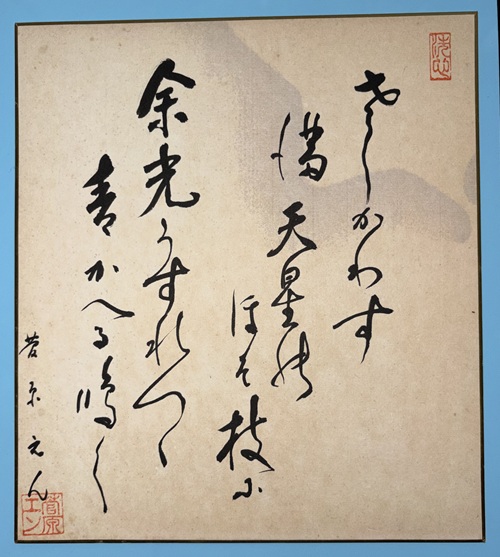 さしかわす
満天星の
ほそ枝に
余光うすれつゝ
青かへる鳴く
菅原えん
洗心
菅原エン